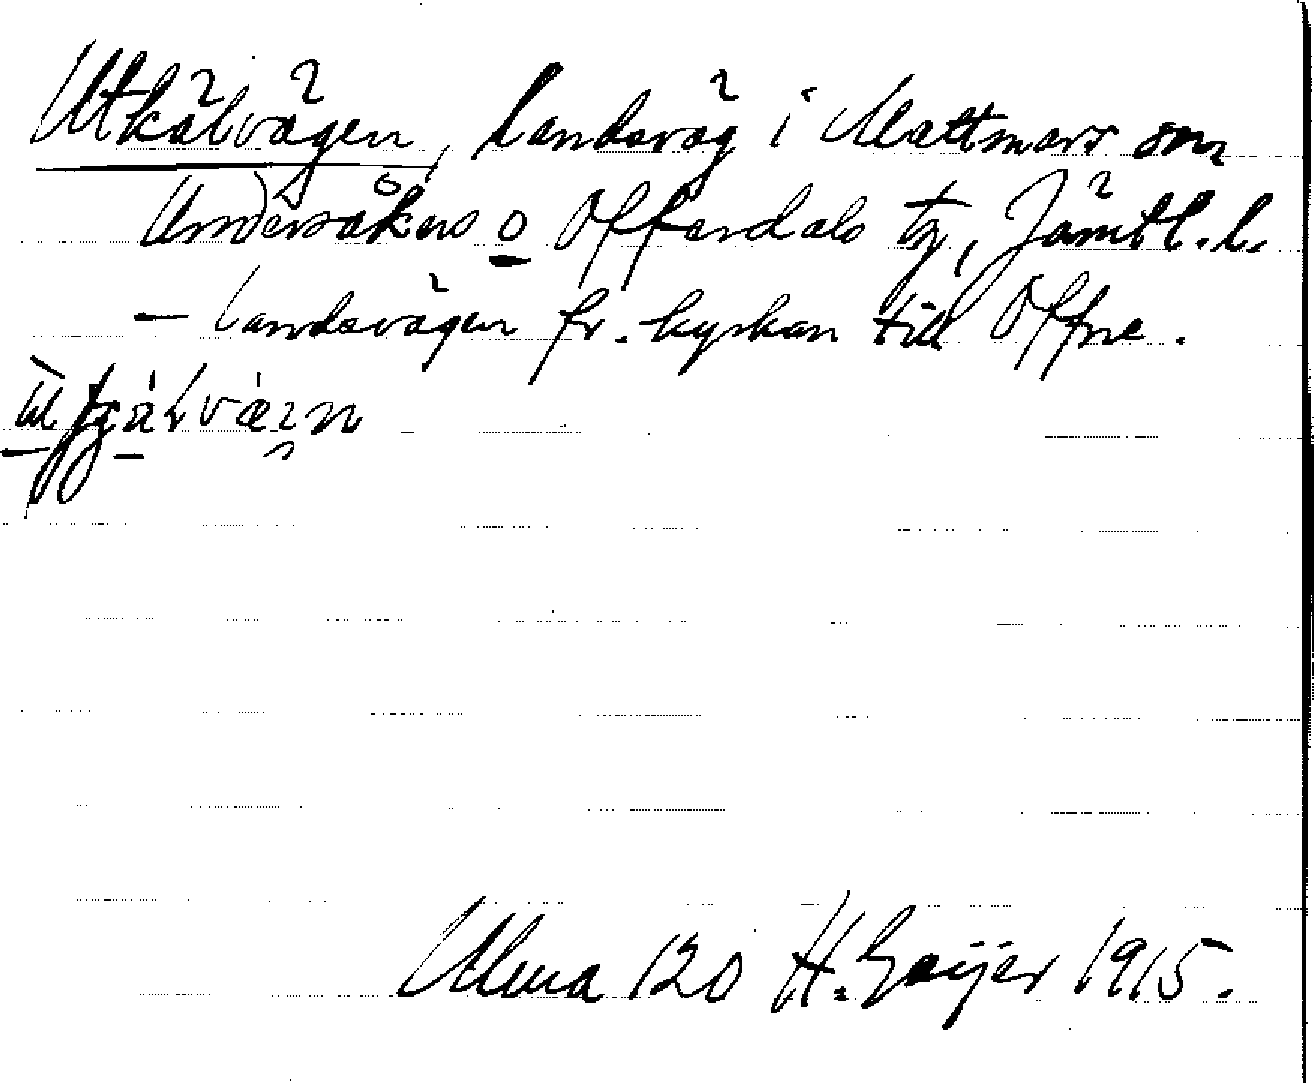 Utkälvägen, landsväg i Mattmars sn,
Undersåkers o Offerdals tg, Jämtl. l.
– landsvägen fr. kyrkan till Offne.
Ulma 120 H. Geijer 1915.